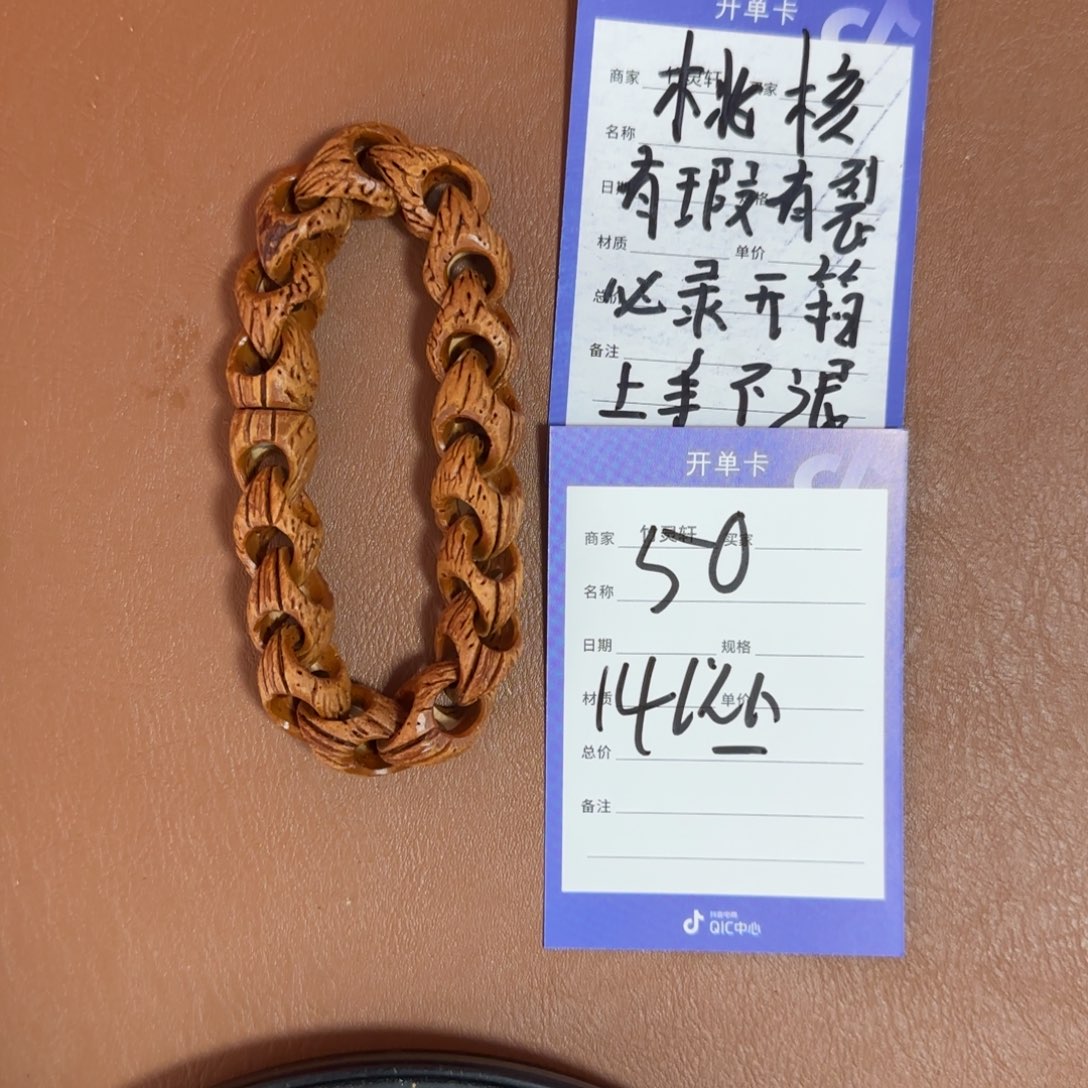 开单卡
商家 竹灵轩 买家
桃核
名称
日期 规格
有瑕有裂
材质 单价
总价
必录开箱
备注
上手不退
开单卡
商家 竹灵轩 买家
50
名称
日期 规格
材质 单价
14以下
总价
备注
抖音电商
QIC中心